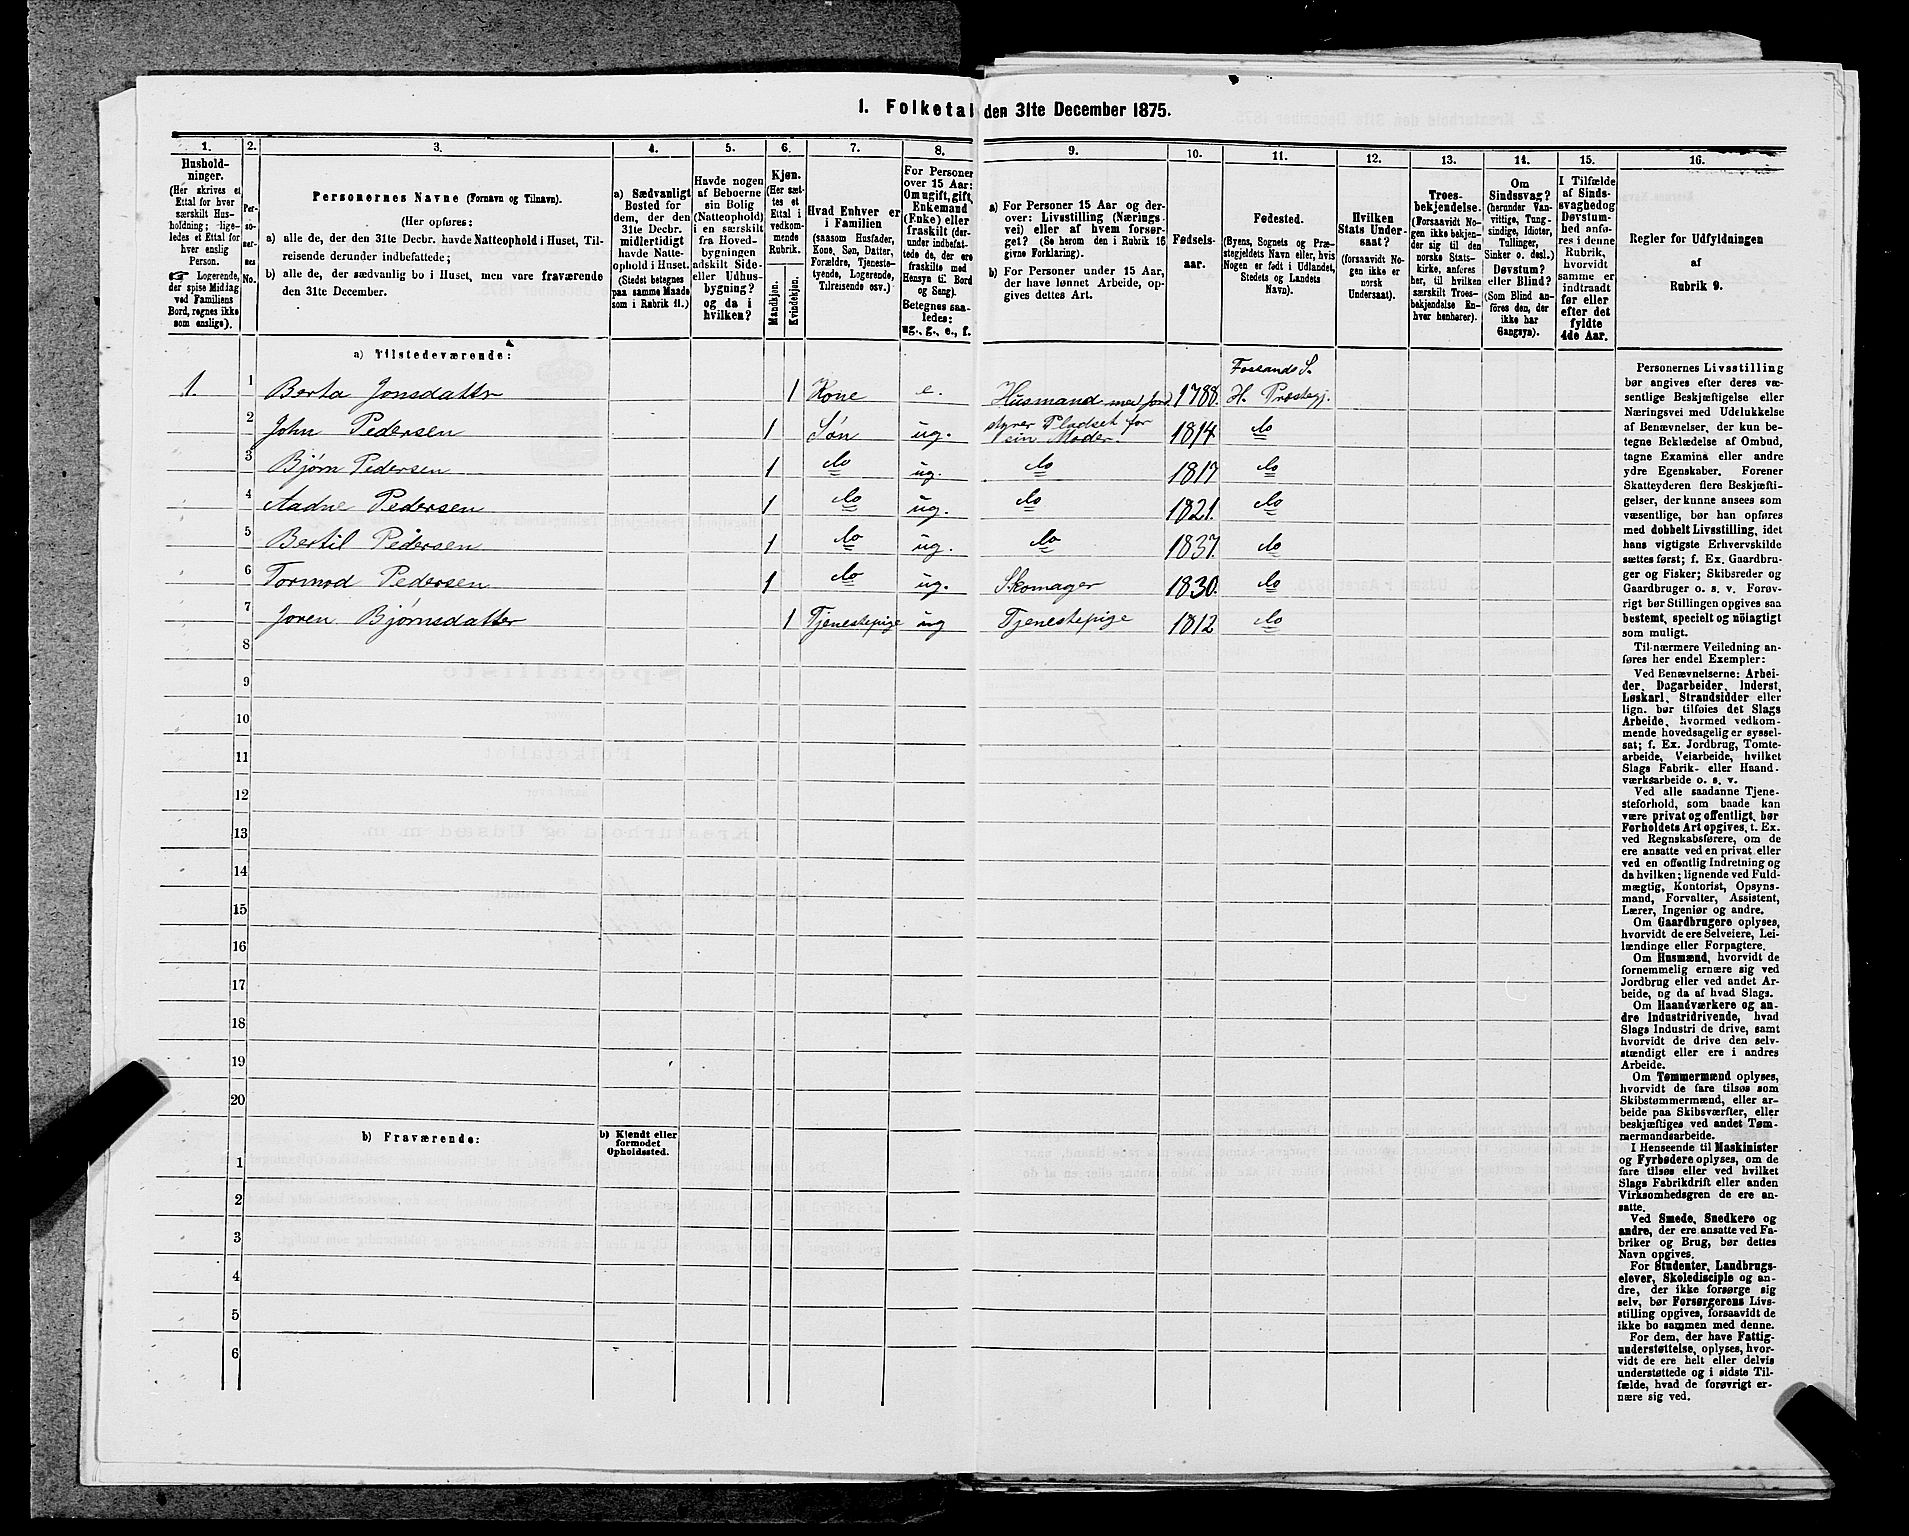 1. Folketal den 31te December 1875.
1. 2. 3. 4. 5. 6. 7. 8. 9. 10. 11. 12. 13. 14. 15. 16.
Hushold-
ninger.
(Her skrives et
Ettal for hver
særskilt Hus-
holdning; lige-
ledes et Ettal for
hver enslig
Person.
☞ Logerende,
der spise Middag
ved Familiens
Bord, regnes ikke
som enslige).
Per-
so-
ner-
nes
No.
Personernes Navne (Fornavn og Tilnavn).
(Her opføres:
a) alle de, der den 31te Decbr. havde Natteophold i Huset, Til-
reisende derunder indbefattede;
b) alle de, der sædvanlig bo i Huset, men vare fraværende
den 31te December.
a) Sædvanligt
Bosted for
dem, der den
31te Decbr.
midlertidigt
havde Natte-
ophold i Huset.
(Stedet betegnes
paa samme Maade
som i Rubrik 11.)
Havde nogen
af Beboerne
sin Bolig
(Natteophold)
i en særskilt
fra Hoved-
bygningen
adskilt Side-
eller Udhus-
bygning?
og da i
hvilken?
Kjøn.
(Her sæt-
tes et
Ettal i
vedkom-
mende
Rubrik.
Mandkjøn.
Kvindekjøn.
Hvad Enhver er
i Familien
(saasom Husfader,
Kone, Søn, Datter,
Forældre, Tjeneste-
tyende, Logerende,
Tilreisende osv.)
For Personer
over 15 Aar:
Om ugift, gift,
Enkemand
(Enke) eller
fraskilt (der-
under indbefat-
tede de, der ere
fraskilte med
Hensyn til Bord
og Seng).
Betegnes saa-
ledes:
ug., g., e., f.
a) For Personer 15 Aar og der-
over: Livsstilling (Nærings-
vei) eller af hvem forsør-
get? (Se herom den i Rubrik 16
givne Forklaring).
b) For Personer under 15 Aar,
der have lønnet Arbeide, op-
gives dettes Art.
Fødsels-
aar.
Fødested.
(Byens, Sognets og Præ-
stegjeldets Navn eller, hvis
Nogen er født i Udlandet,
Stedets og Landets
Navn).
Hvilken
Stats Under-
saat?
(forsaavidt No-
gen ikke er
norsk
Undersaat).
Troes-
bekjendelse.
(Forsaavidt No-
gen ikke bekjen-
der sig til den
norske Stats-
kirke, anføres
her, til hvilken
særskilt Troes-
bekjendelse En-
hver henhører).
Om
Sindssvag?
(herunder Van-
vittige, Tung-
sindige, Idioter,
Tullinger,
Sinker o. desl.)
Døvstum?
eller Blind?
(Som Blind an-
føres den, der
ikke har
Gangsyn).
I Tilfælde
af Sinds-
svaghed og
Døvstum-
hed anfø-
res i denne
Rubrik,
hvorvidt
samme er
indtraadt
før eller
efter det
fyldte
4de Aar.
Regler for Udfyldningen
af
Rubrik 9.
a) Tilstedeværende:
1. 1 Berta Jonsdatter 1 Kone e. Husmand med jord 1788. Fossands S. H. Præstegj.
2 John Pedersen 1 Søn ug. styrer Pladset for sin Moder. 1814. do
3 Bjørn Pedersen 1 do ug. do 1817 do
4 Aadne Pedersen 1 do ug. do 1821. do
5 Bertil Pedersen 1 do ug. do 1837. do
6 Tormod Pedersen 1 do ug. Skomager 1830. do
7 Joren Bjørnsdatter 1 Tjenestepige ug Tjenestepige 1812 do
8
9
10
11
12
13
14
15
16
17
18
19
20
b) Fraværende:
b) Kjendt eller
formodet
Opholdssted.
1
2
3
4
5
6
Personernes Livsstilling
bør angives efter deres væ-
sentlige Beskjæftigelse eller
Næringsvei med Udelukkelse
af Benævnelser, der kun be-
tegne Beklædelse af Ombud,
tagne Examina eller andre
ydre Egenskaber. Forener
Skatteyderen flere Beskjæfti-
gelser, der kunne ansees som
væsentlige, bør han opføres
med dobbelt Livsstilling, idet
hans vigtigste Erhvervskilde
sættes først; f. Ex. Gaardbru-
ger og Fisker; Skibsreder og
Gaardbruger o. s. v. Forøv-
rigt bør Stillingen opgives saa
bestemt, specielt og nöiagtigt
som muligt.
Til nærmere Veiledning an-
føres her endel Exempler:
Ved Benævnelserne: Arbei-
der, Dagarbeider, Inderst,
Løskarl, Strandsidder eller
lign. bør tilføies det Slags
Arbeide, hvormed vedkom-
mende hovedsagelig er syssel-
sat; f. Ex. Jordbrug, Tomte-
arbeide, Veiarbeide, hvilket
Slags Fabrik- eller Haand-
værksarbeide o. s. v.
Ved alle saadanne Tjene-
steforhold, som baade kan
være privat og offentligt, bør
Forholdets Art opgives, t. Ex.
ved Regnskabsførere, om de
ere ansatte ved en privat eller
ved en offentlig Indretning og
da hvilken; lignende ved Fuld-
mægtig, Kontorist, Opsyns-
mand, Forvalter, Assistent,
Lærer, Ingeniør og andre.
Om Gaardbrugere oplyses,
hvorvidt de ere Selveiere, Lei-
lændinge eller Forpagtere.
Om Husmænd, hvorvidt de
fornemmelig ernære sig ved
Jordbrug eller ved andet Ar-
beide, og da af hvad Slags.
Om Haandværkere og an-
dre Industridrivende, hvad
Slags Industri de drive, samt
hvorvidt de drive den selv-
stændigt eller ere i andres
Arbeide.
Om Tømmermænd oplyses,
hvorvidt de fare tilsøs som
Skibstømmermænd, eller ar-
beide paa Skibsværfter, eller
beskjæftiges ved andet Tøm-
mermandsarbeide.
I Henseende til Maskinister
og Fyrbødere oplyses, om de
fare tilsøs eller ved hvilket
Slags Fabrikdrift eller anden
Virksomhedsgren de ere an-
satte.
Ved Smede, Snedkere og
andre, der ere ansatte ved Fa-
briker og Brug, bør dettes
Navn opgives.
For Studenter, Landbrugs-
elever, Skoledisciple og an-
dre, der ikke forsørge sig
selv, bør Forsørgerens Livs-
stilling opgives, forsaavidt de
ikke bo sammen med denne.
For dem, der have Fattig-
understøttelse, oplyses, hvor-
vidt de ere helt eller delvis
understøttede og i sidste Til-
fælde, hvad de forøvrigt er-
nære sig ved.